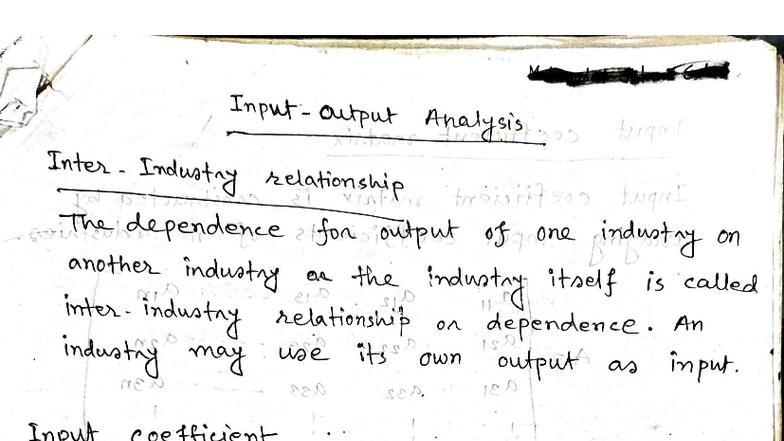 Input-Output Analysis
Inter-Industry relationship
The dependence for output of one industry on
another industry or the industry itself is called
inter-industry relationship or dependence. An
industry may use its own output as input.
Input coefficient